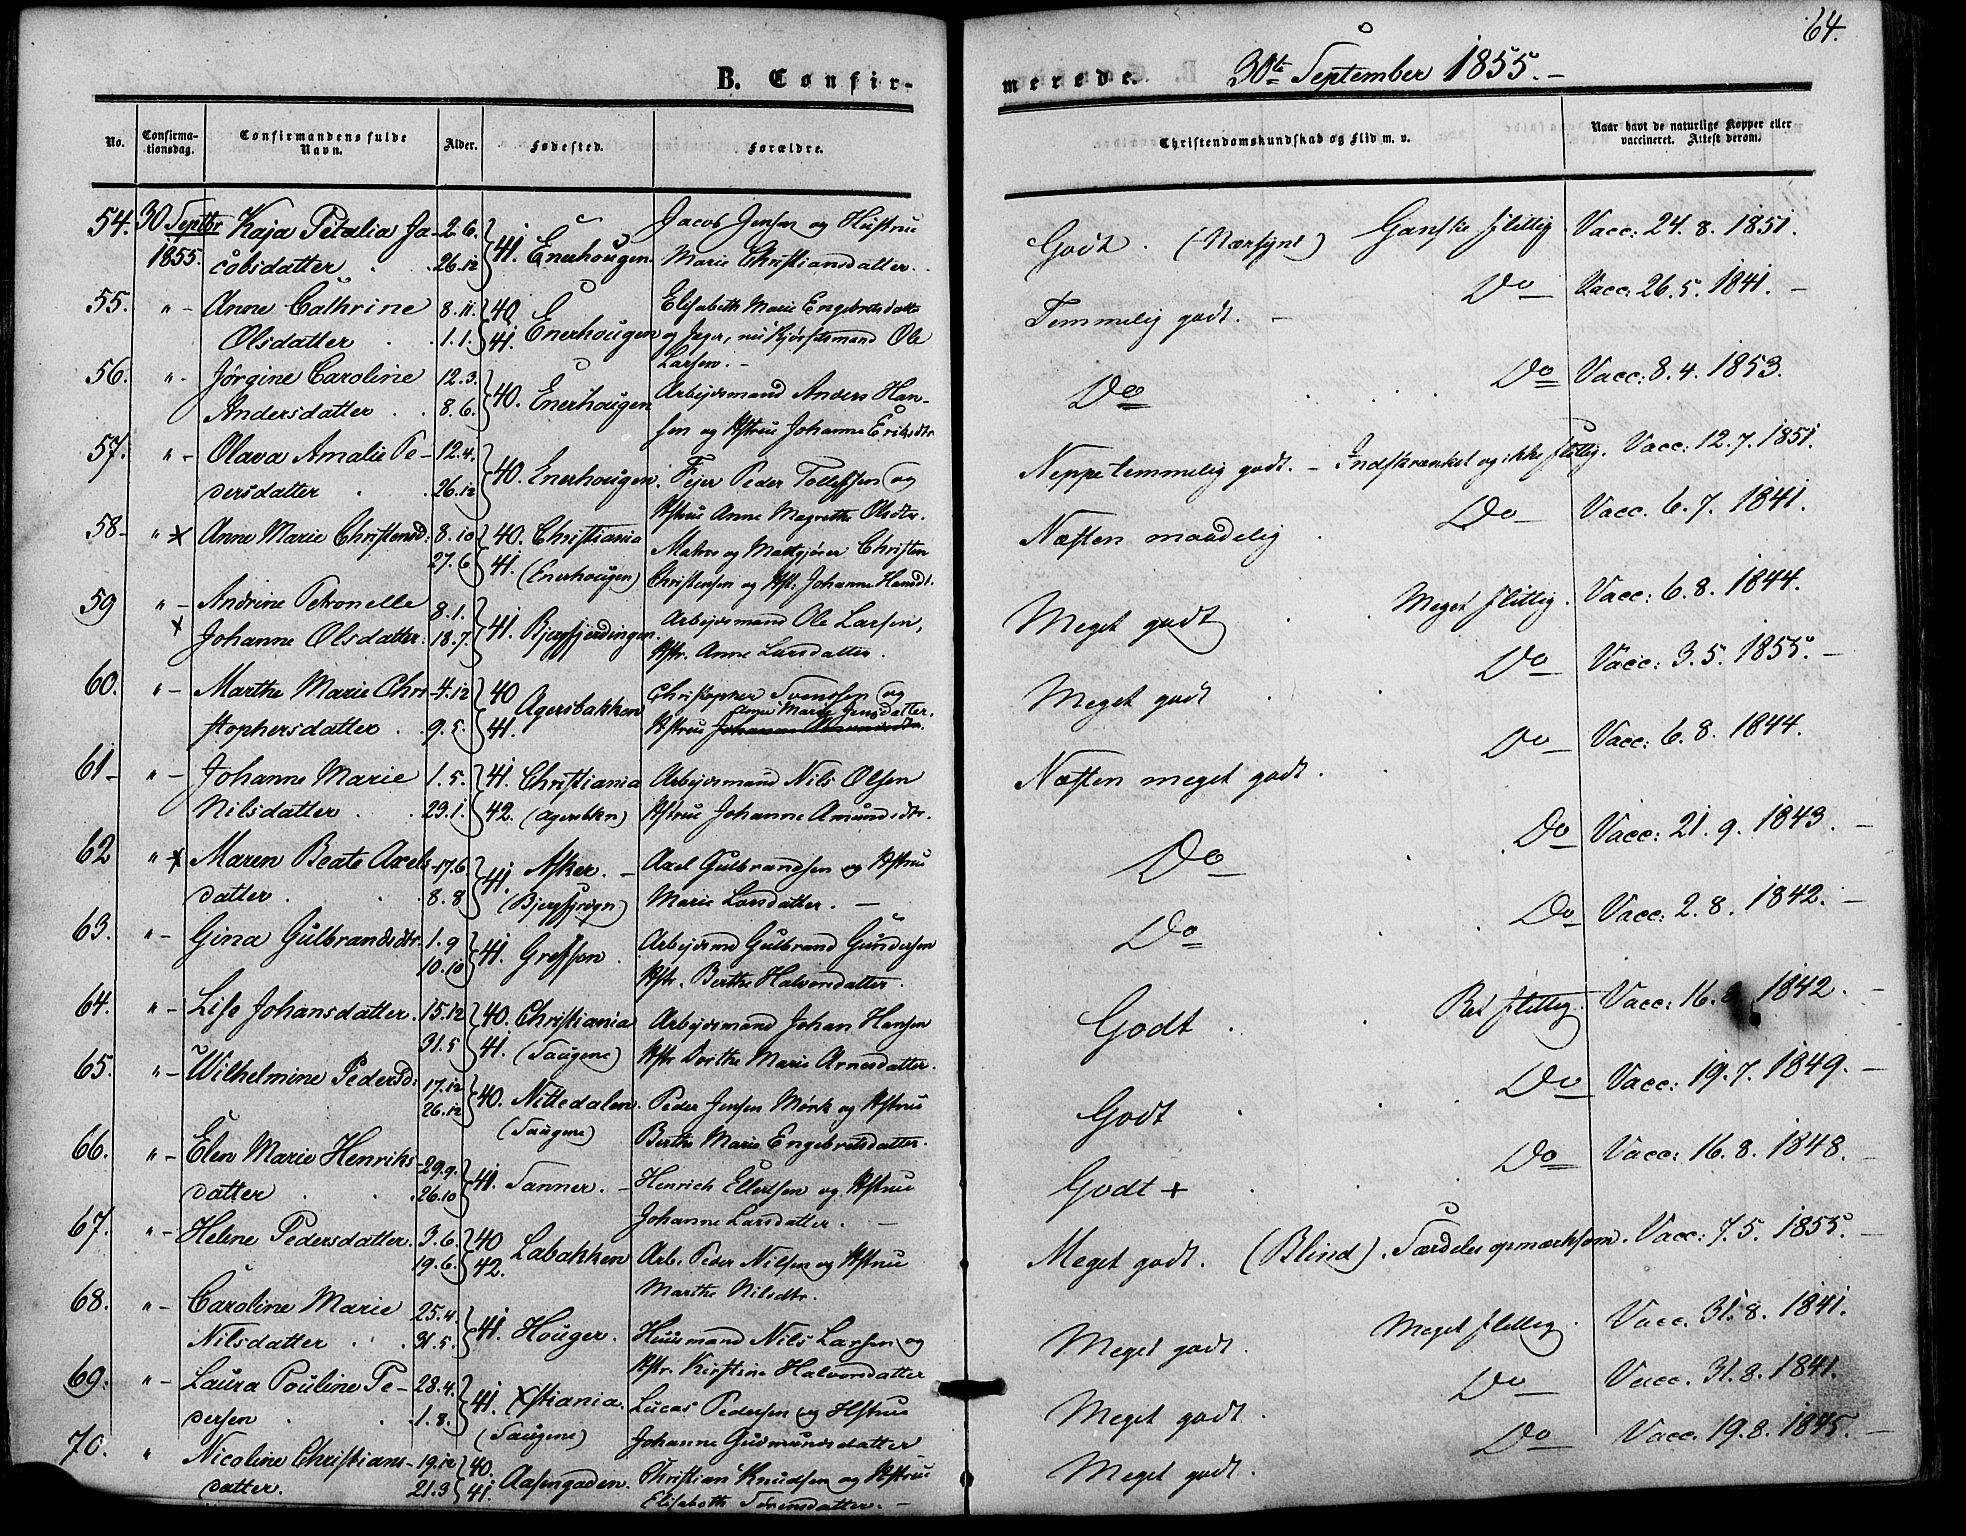 64.
B. Confirmerede. 30te September 1855. –
No. Confirmationsdag. Confirmandens fulde Navn. Alder. Fødested. Forældre. Christendomskundskab og Flid m. v. Naar havt de naturlige Kopper eller vaccineret. Attest derom.
54. 30 Septbr Kaja Petalia Ja- 2.6. } 41. Enerhougen. Jacob Jensen og Hustrue Godt. (Nærsynt) Ganske flittig Vacc: 24. 8. 1851.
1855. cobsdatter . . 26.12 Marie Christiansdatter.
55. "- Anne Cathrine 8.11. } 40. Enerhougen Elisabeth Marie Engebretsdatter Temmelig godt. – Do Vacc: 26. 5. 1841. –
Olsdatter . . 1.1. 41. og Jæger, nu Ole
Larsen. –
56. "- Jørgine Caroline 12.3. } 40. Enerhougen Arbejdsmand Anders Han- Do . . . Do Vacc: 8. 4. 1853.
Andersdatter . . 8.6. sen og Hstrue Johanne Eriksdtr
57. "- Olava Amalie Pe- 12.4. } 40. Enerhougen. Fejer Peder Tollefsen og Neppe temmelig godt. – Indskrænket og ikke flittig. Vacc: 12. 7. 1851.
dersdatter . . 26.12 Hstrue Anne Magrethe Olsdtr.
58- " x Anne Marie Christensd: 8.10 } 40. Christiania Christen Næsten maadelig . Do Vacc. 6. 7. 1841.
27.6 41. (Enerhougen) Christensen og Hst: Johanne Hansdt.
59 "- Andrine Petronelle 8.1. } 41. Bjergfjerdingen. Arbejdsmand Ole Larsen, Meget godt . . Meget flittig . Vacc: 6. 8. 1844.
x Johanne Olsdatter. 18.7. Hstr. Anne Larsdatter.
60. "- Marthe Marie Chri- 4.12 } 40 Agersbakken Christopher Svendsen og Meget godt . . Do Vacc: 3. 5. 1855. –
stophersdatter . . 9.5. 41. Hstrue Anne Marie Jensdatter.
61- "- Johanne Marie 1.5. } 41. Christiania Arbejdsmand Nils Olsen Næsten meget godt . . Do Vacc: 6. 8. 1844.
Nilsdatter . . 29.1. 42. (Agersbkn) Hstrue Johanne Amundsdtr.
62 " x Maren Beate Axels- 17.6. } 41. Asker. – Axel Gulbrandsen og Hstrue Do . . Do Vacc: 21. 9. 1843. –
datter . . 8.8 (Bjergfjrdgn) Marie Larsdatter. –
63. "- Gina Gulbrandsdtr. 1.9 } 41. Grefsen . Arbejdsmd Gulbrand Gundersen Do . Do Vacc: 2. 8. 1842. –
10.10 Hstr. Berthe Halvorsdatter.
64. "- Lise Johansdatter. 15.12 } 40. Christiania Arbejdsmand Johan Hansen Godt . . Ret flittig. Vacc: 16. 8. 1842. –
31.5 41. (Saugene) Hstr Dorthe Marie Arnesdatter.
65. "- Wilhelmine Pedersd: 17.12 } 40. Nittedalen. Peder Jensen Mørk og Hstrue Godt . . . Do Vacc: 19. 7. 1849. –
26.12 (Saugene) Berthe Marie Engebretsdatter.
66. "- Elen Marie Henriks- 29.9. } 41. Tanner. – Henrich Ellertsen og Hstrue Godt + . . Do Vacc: 16. 8. 1848. –
datter . . 26.10 Johanne Larsdatter. –
67. "- Helene Pedersdatter. 3.6. } 40 Labakken Arb. Peder Nilsen og Hstrue Meget godt. (Blind). Særdeles opmærksom. Vacc: 7. 5. 1855. –
19.6. 42. Marthe Nilsdtr.
68. "- Caroline Marie 25.4. } 41. Houger. Huusmand Nils Larsen og Meget godt. Meget flittig . Vacc. 31. 8. 1841.
Nilsdatter . . 31.5. Hstr. Kirstine Halvorsdatter
69. "- Laura Pouline Pe- 28.4. } 41. Xstiania. Lucas Pedersen og Hstrue Meget godt. Do Vacc. 31. 8. 1841.
dersen . . 1.8. (Saugene) Johanne Gudmundsdatter
70. " Nicoline Christians- 19.12 } 40. Aasengaden. Christian Knudsen og Hstrue Meget godt. Do Vacc. 19. 8. 1845. –
datter. . 21.9 41. Elisabeth Sørensdatter. –